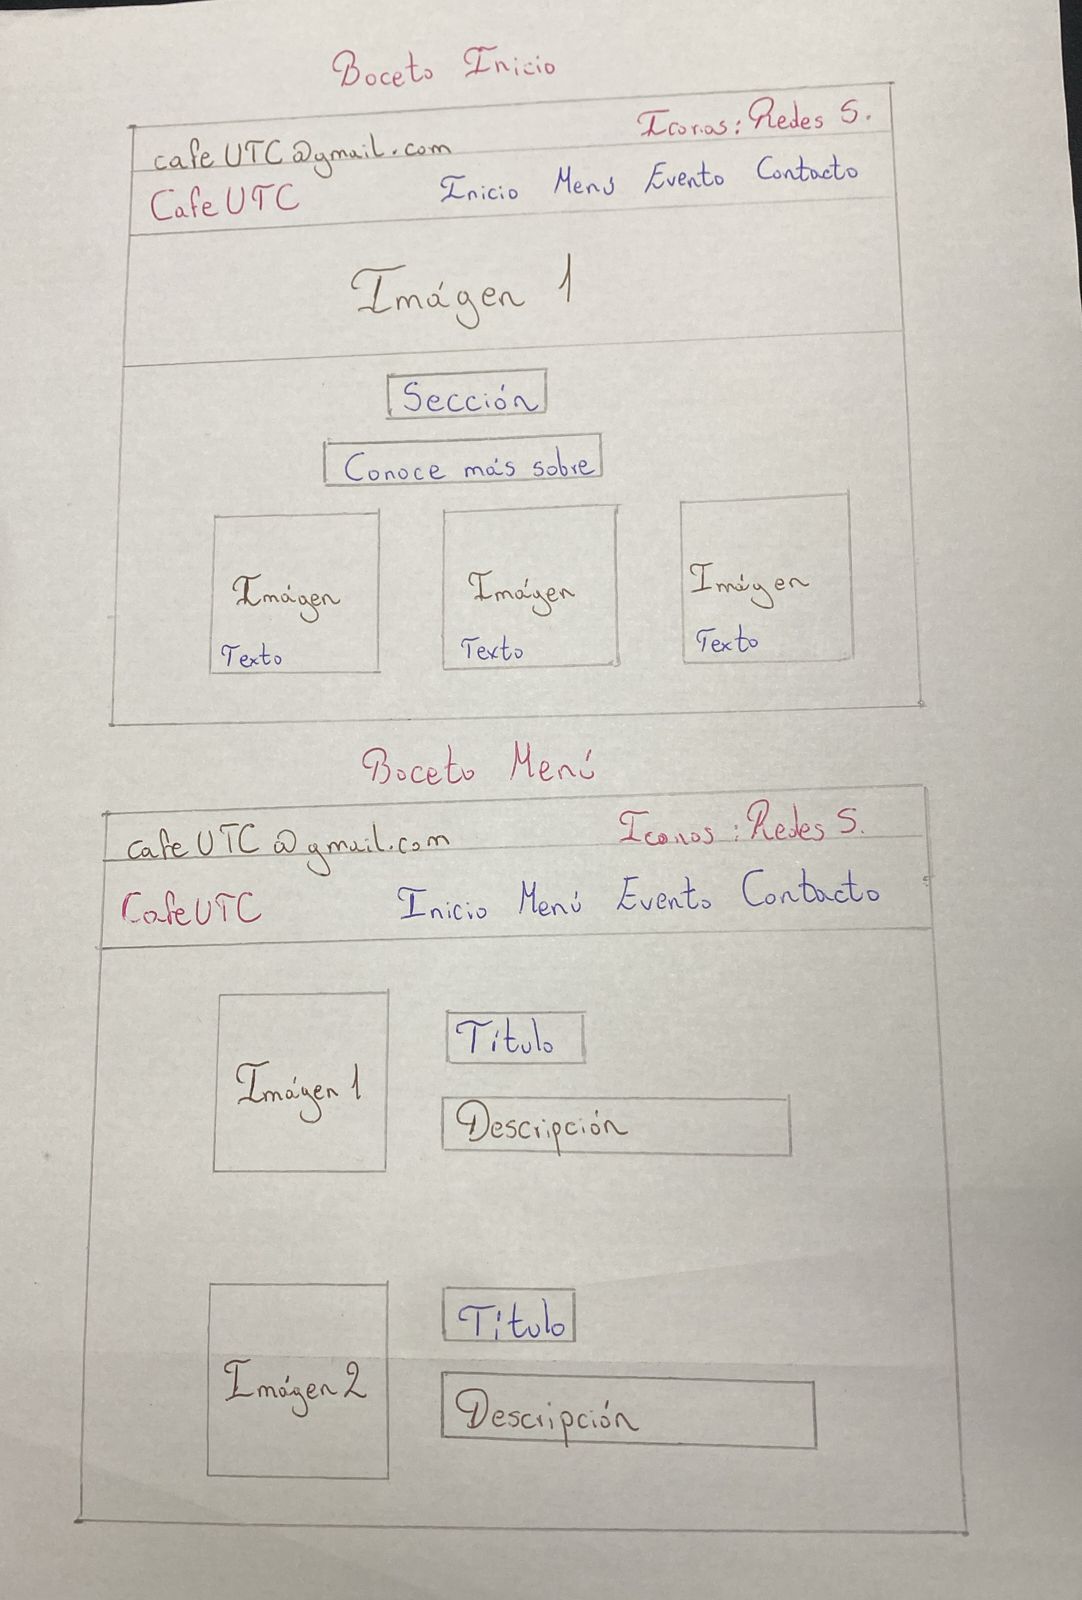 Boceto Inicio
cafeUTC@gmail.com Iconos: Redes S.
CafeUTC Inicio Menú Evento Contacto
Imágen 1
Sección
Conoce más sobre
Imágen Imágen Imágen
Texto Texto Texto
Boceto Menú
cafeUTC@gmail.com Iconos: Redes S.
CafeUTC Inicio Menú Evento Contacto
Título
Imágen 1
Descripción
Título
Imágen 2
Descripción